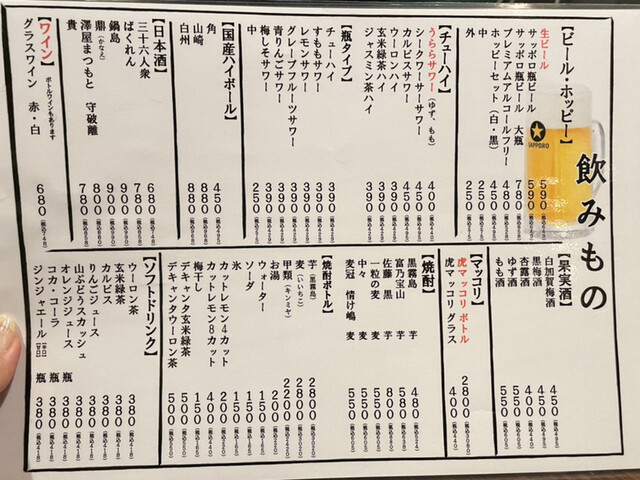 飲みもの
SAPPORO
【ビール・ホッピー】
生ビール 590
サッポロ瓶ビール 590
サッポロ瓶ビール 大瓶 780
プレミアムアルコールフリー 450
ホッピーセット（白・黒） 450
外
中 250
【チューハイ】
うららサワー（ゆず、もも） 400
シークワーサーサワー 450
カルピスサワー 450
ウーロンハイ 390
玄米緑茶ハイ 390
ジャスミン茶ハイ 390
【瓶タイプ】
チューハイ 390
すももサワー 390
レモンサワー 390
グレープフルーツサワー 390
青りんごサワー 390
梅しそサワー 390
中 250
【国産ハイボール】
角 450
山崎 880
白州 880
【日本酒】
三十六人衆 680
ばくれん 780
鍋島 900
鼎（かなえ） 900
澤屋まつもと 守破離 800
貴 780
【ワイン】
ボトルワインもあります
グラスワイン 赤・白 680
【果実酒】
白加賀梅酒 450
黒梅酒 450
杏露酒 400
ゆず酒 550
もも酒 550
【マッコリ】
虎マッコリ ボトル 2800
虎マッコリ グラス 440
【焼酎】
黒霧島 芋 480
富乃宝山 芋 580
佐藤 黒 芋 800
一粒の麦 麦 550
中々 麦 550
麦冠 情け嶋 麦 550
【焼酎ボトル】
芋（黒霧島） 2800
麦（いいちこ） 2800
甲類（キンミヤ） 2200
お湯 200
ウォーター 200
ソーダ 150
氷 150
カットレモン4カット 200
カットレモン8カット 400
梅干し 150
デキャンタ玄米緑茶 500
デキャンタウーロン茶 500
【ソフトドリンク】
ウーロン茶 380
玄米緑茶 380
カルピス 380
りんごジュース 380
山ぶどうスカッシュ 380
オレンジジュース 瓶 380
コカ・コーラ 瓶 380
ジンジャエール【辛口】 瓶 380